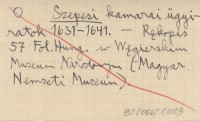 Szepesi kamarai ügyi-
ratok 1631-1641. — Rękopis
57 Fol. Hung. w Węgierskim
Muzeum Narodowym (Magyar
Nemzeti Muzeum)